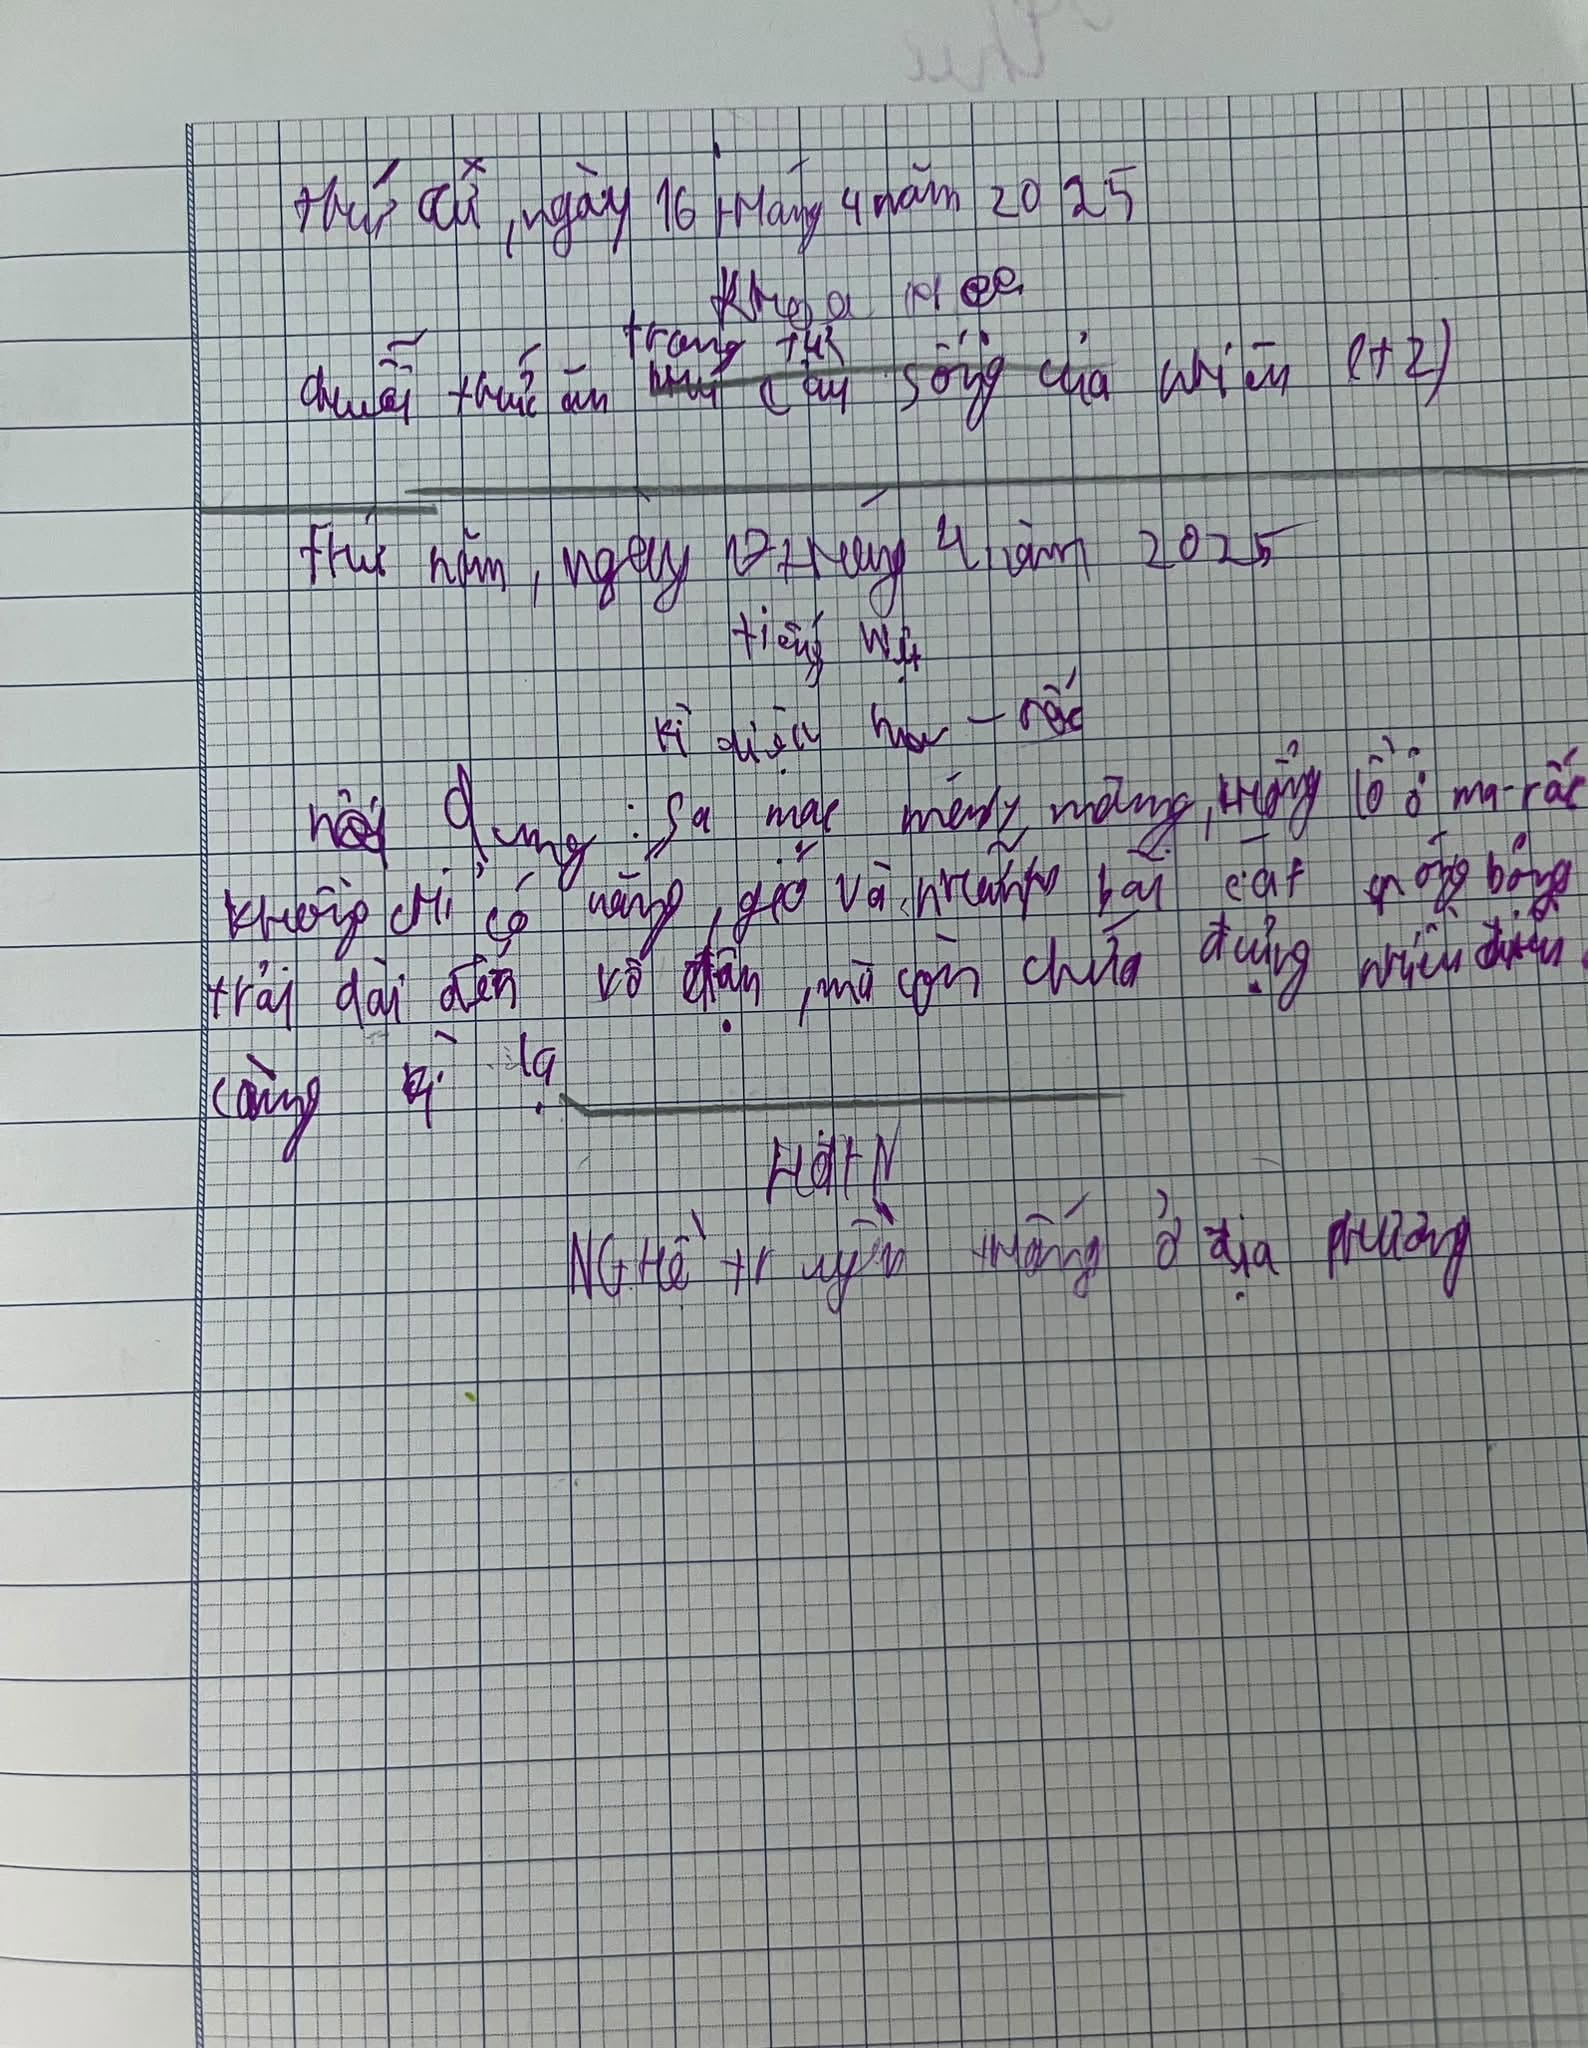 thứ tư, ngày 16 tháng 4 năm 2025
Khoa học
trong tự
chuỗi thức ăn cây sống của nhiên (t2)
thứ năm, ngày 17 tháng 4 năm 2025
tiếng việt
kì diệu ma-rốc
nội dung: Sa mạc mênh mông, khổng lồ ở ma-rốc
không chỉ có nắng, gió và những bãi cát nóng bỏng
trải dài đến vô tận, mà còn chứa đựng nhiều điều
càng kì lạ
HĐTN
NGHề truyền thống ở địa phương